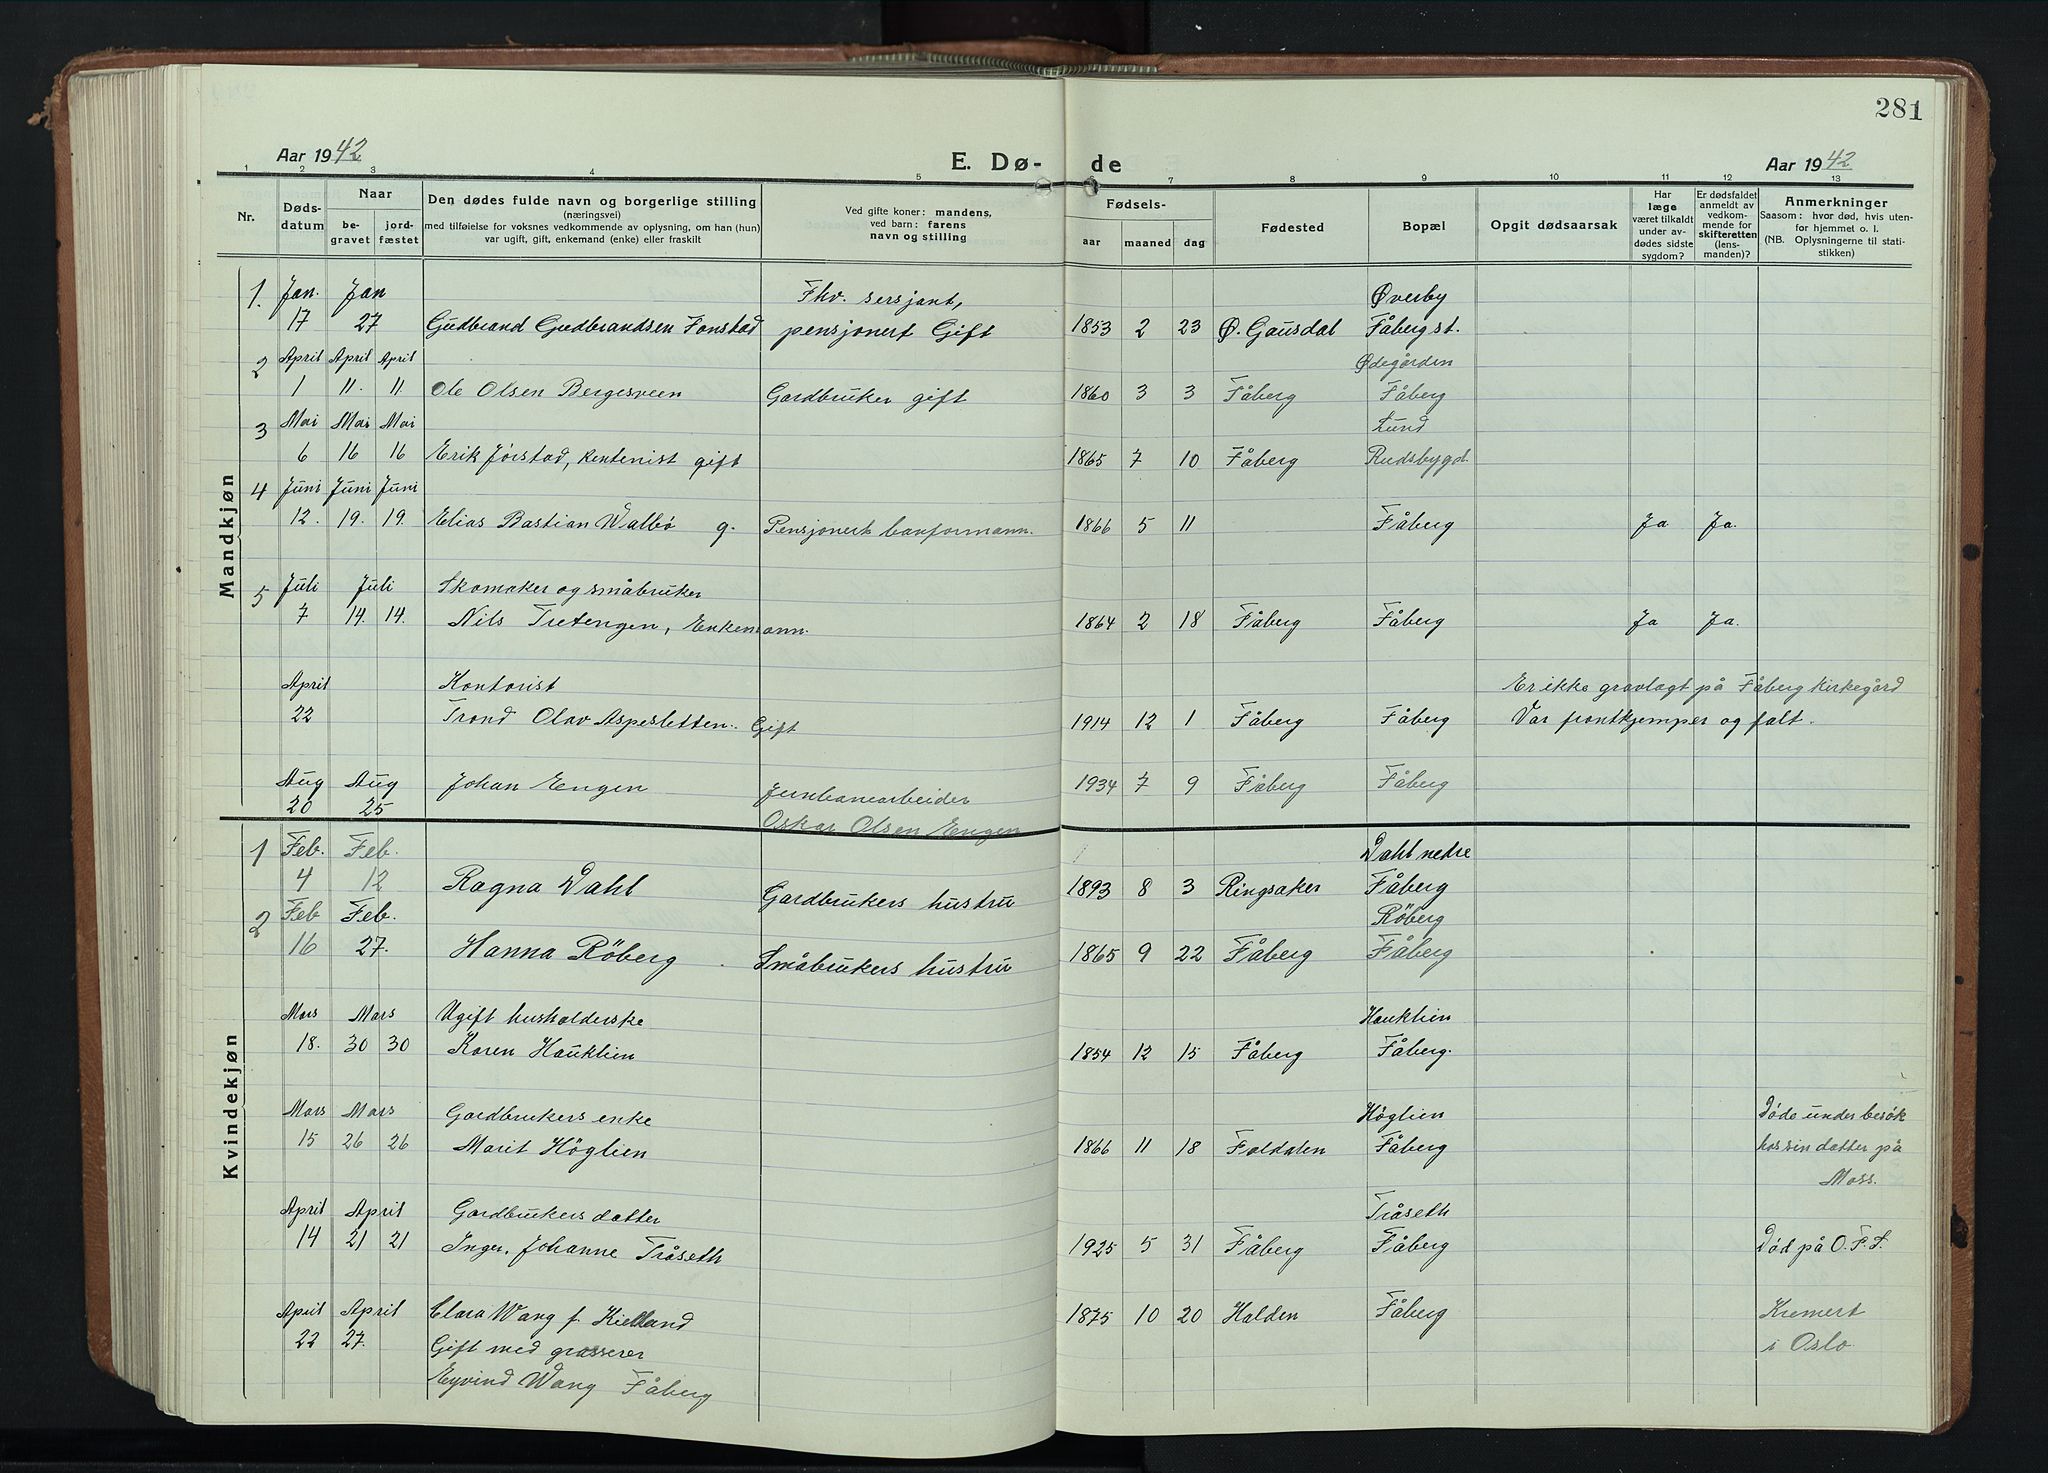 281
Aar 1942
E. Dø-
de
Aar 1942
1 2 3 4 5 7 8 9 10 11 12 13
Nr.
Døds-
datum
Naar
be-
gravet
jord-
fæstet
Den dødes fulde navn og borgerlige stilling
(næringsvei)
med tilføielse for voksnes vedkommende av oplysning, om han (hun)
var ugift, gift, enkemand (enke) eller fraskilt
Ved gifte koner: mandens,
ved barn: farens
navn og stilling
Fødsels-
aar maaned dag
Fødested
Bopæl
Opgit dødsaarsak
Har
læge
været tilkaldt
under av-
dødes sidste
sygdom?
Er dødsfaldet
anmeldt av
vedkom-
mende for
skifteretten
(lens-
manden)?
Anmerkninger
Saasom: hvor død, hvis uten-
for hjemmet o. l.
(NB. Oplysningerne til stati-
stikken)
Mandkjøn
1. Jan. Jan Fhv. sersjant, Øverby
17 27 Gudbrand Gudbrandsen Fonstad pensjonert Gift 1853 2 23 Ø. Gausdal Fåberg st.
2 April April April Ødegården
1 11. 11 Ole Olsen Bergesveen Gardbruker gift 1860 3 3 Fåberg Fåberg
3 Mai Mai Mai Lund
6 16 16 Erik Jørstad, Rentenist gift 1865 7 10 Fåberg Rudsbygd.
4 Juni Juni Juni
12. 19. 19. Elias Bastian Walbö g. Pensjonert banformann. 1866 5 11 Fåberg Ja Ja.
5 Juli Juli Skomaker og småbruker
7 14. 14. Nils Tretengen, Enkemann. 1864 2 18 Fåberg Fåberg Ja Ja.
April Kontorist Er ikke gravlagt på Fåberg kirkegård
22 Trond Olav Aspesletten. Gift 1914 12 1 Fåberg Fåberg Var frontkjemper og falt.
Aug Aug Johan Engen Jernbanearbeider 1934 7 9 Fåberg Fåberg
20 25 Oskar Olsen Engen
Kvindekjøn
1 Feb. Feb. Dahl nedre
4 12 Ragna Dahl Gardbrukers hustru 1893 8 3 Ringsaker Fåberg
2 Feb Feb. Röberg
16 27. Hanna Röberg Småbrukers hustru 1865 9 22 Fåberg Fåberg
Mars Mars Ugift husholderske Hauklien
18. 30 30 Karen Hauklien 1854 12 15 Fåberg Fåberg.
Mars Mars Gardbrukers enke Höglien Døde under besök
15 26 26 Marit Höglien 1866 11 18 Foldalen Fåberg hos sin datter på
Moss.
April April Gardbrukers datter Tråseth
14 21 21 Inger Johanne Tråseth 1925 5 31 Fåberg Fåberg Död på O. F. S.
April April Clara Wang f. Kielland 1875 10 20 Halden Fåberg Kremert
22 27. Gift med grosserer i Oslo.
Eyvind Wang Fåberg